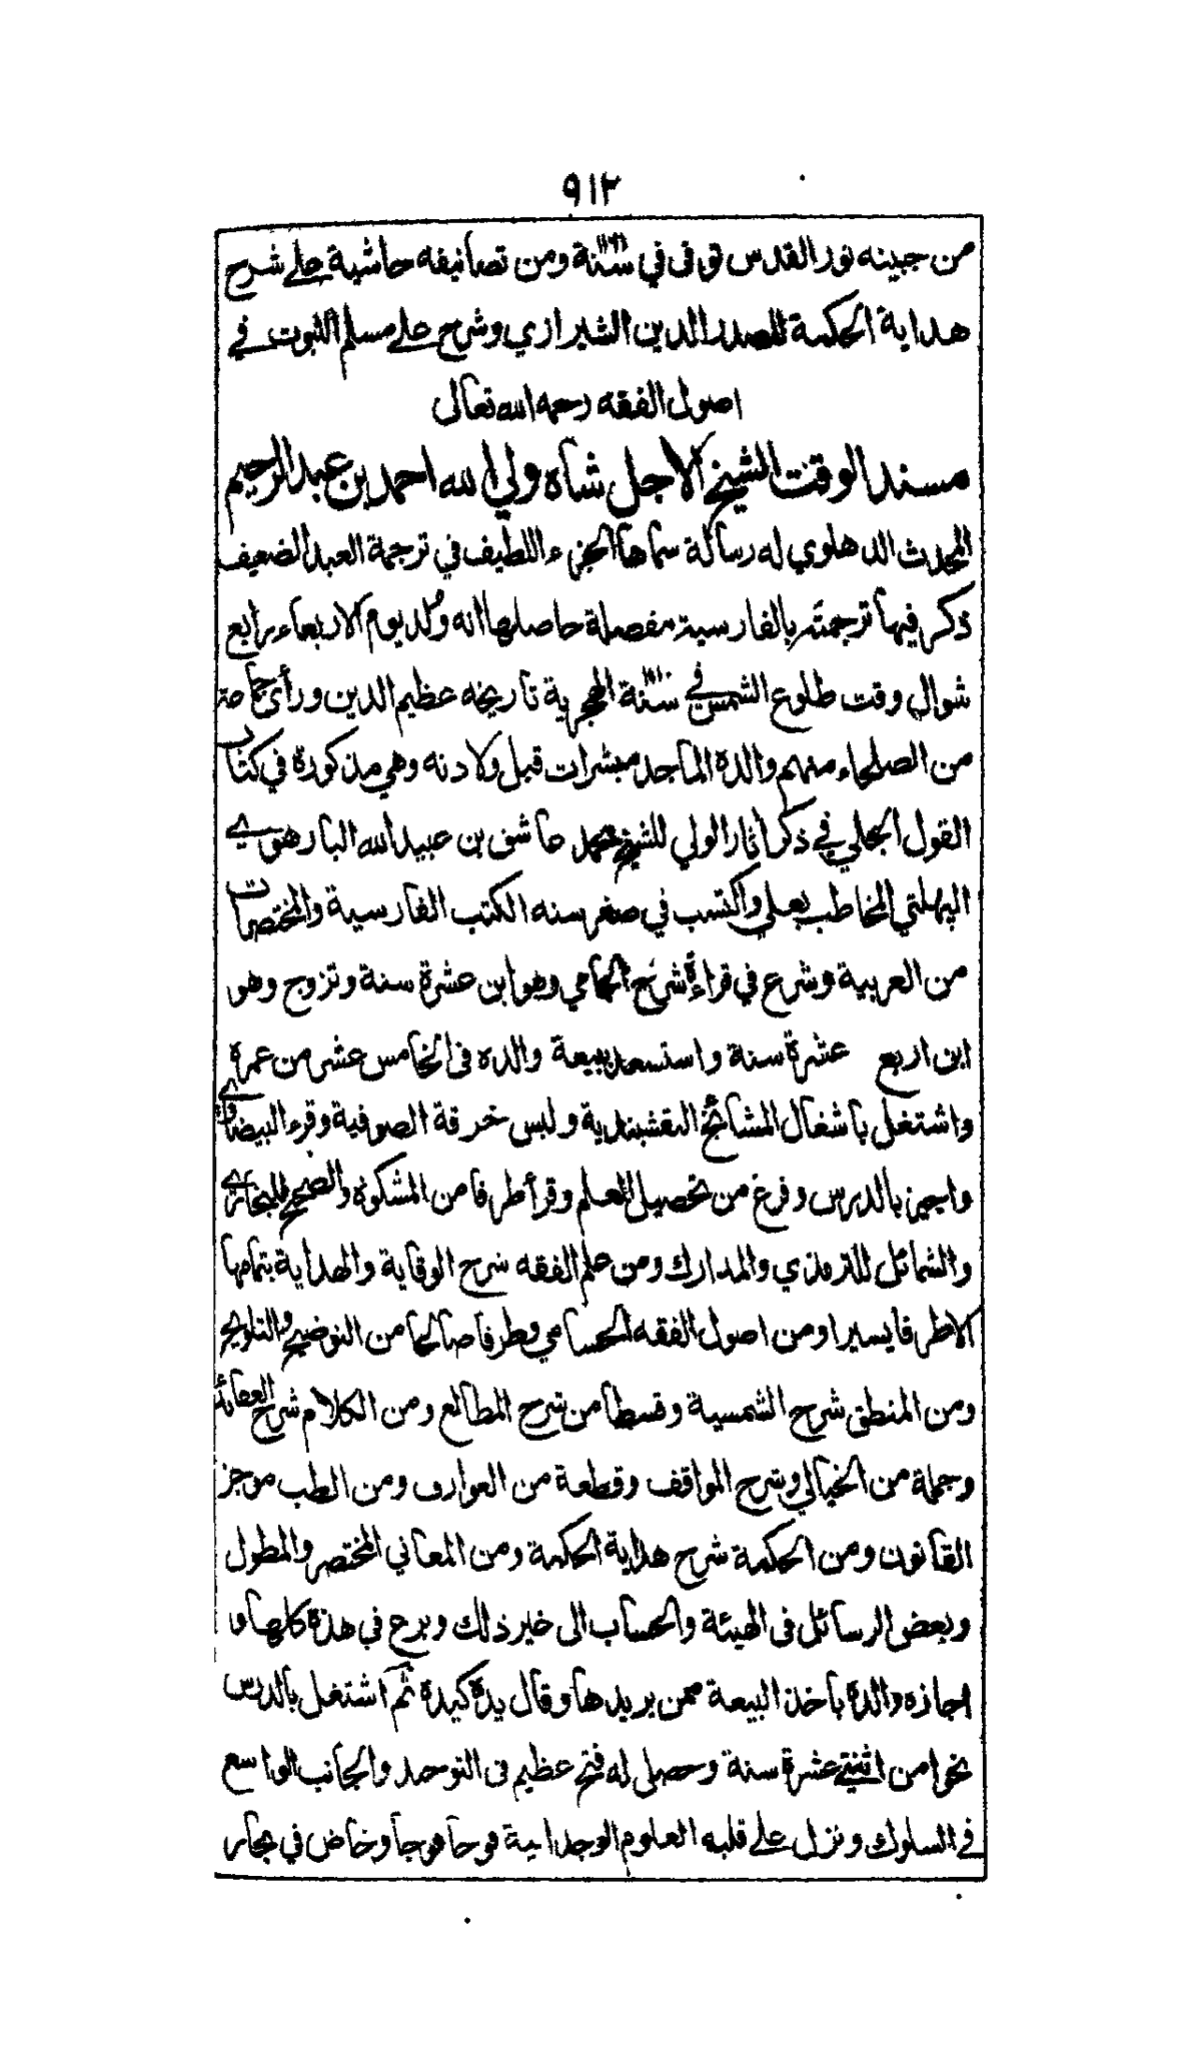 ٩١٢
من جبينه نور القدس توفي في سنة ١١٦١ ومن تصانيفه حاشية على شرح
هداية الحكمة للصدر الدين الشيرازي وشرح على مسلم الثبوت في
اصول الفقه رحمه الله تعالى
مسند الوقت الشيخ الاجل شاه ولي الله احمد بن عبد الرحيم
المحدث الدهلوي له رسالة سماها الجزء اللطيف في ترجمة العبد الضعيف
ذكر فيها ترجمته بالفارسية مفصلة حاصلها انه ولد يوم الاربعاء رابع
شوال وقت طلوع الشمس في سنة الهجرية تاريخه عظيم الدين ورأى جماعة
من الصلحاء منهم والده الماجد مبشرات قبل ولادته وهي مذكورة في كتاب
القول الجلي في ذكر اثار الولي للشيخ محمد عاشق بن عبيد الله البارهوي
البهلتي المخاطب بعلي واكتسب في صغر سنه الكتب الفارسية والمختصرات
من العربية وشرع في قراءة شرح الجامي وهو ابن عشرة سنة وتزوج وهو
ابن اربع عشرة سنة واستسعد ببيعة والده فى الخامس عشر من عمره
واشتغل باشغال المشائخ النقشبندية ولبس خرقة الصوفية وقرء البيضاوي
واجيز بالدرس وفرغ من تحصيل العلم وقرأ طرفا من المشكوة والصحيح للبخاري
والشمائل للترمذي والمدارك ومن علم الفقه شرح الوقاية والهداية بتمامها
الا طرفا يسيرا ومن اصول الفقه الحسامي وطرفا صالحا من التوضيح والتلويح
ومن المنطق شرح الشمسية وقسطا من شرح المطالع ومن الكلام شرح العقائد
وجملة من الخيالي وشرح المواقف وقطعة من العوارف ومن الطب موجز
القانون ومن الحكمة شرح هداية الحكمة ومن المعاني المختصر والمطول
وبعض الرسائل فى الهيئة والحساب الى غير ذلك وبرع في هذه كلها و
اجازه والده باخذ البيعة ممن يريدها وقال يده كيده ثم اشتغل بالدرس
نحوا من اثنتي عشرة سنة وحصل له فتح عظيم فى التوحد والجانب الواسع
في السلوك ونزل على قلبه العلوم الوجدانية فوجا فوجا وخاض في بحار